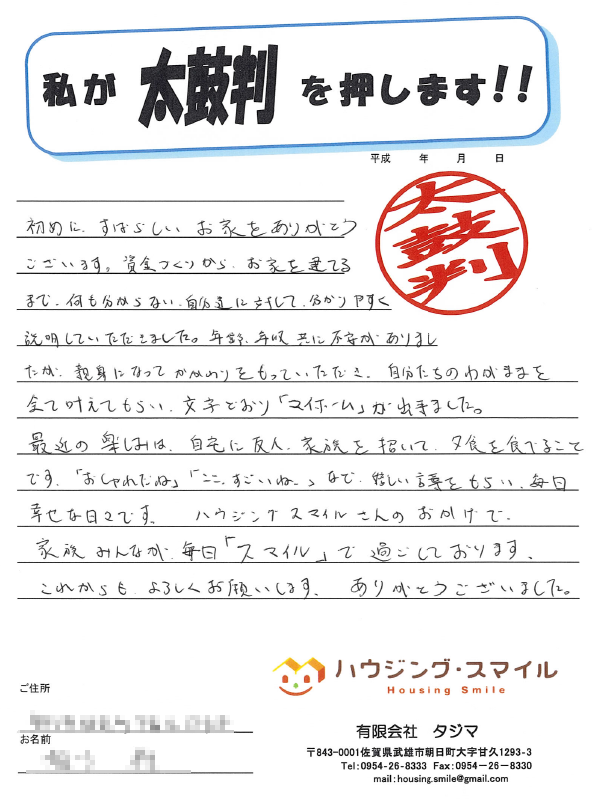 私が 太鼓判 を押します!!
平成　年　月　日
太鼓判
初めに、すばらしい お家をありがとう
ございます。資金づくりから、お家を建てる
まで、何も分からない、自分達に対して、分かりやすく
説明していただきました。年齢、年収 共に不安がありまし
たが、親身になって かかわりをもっていただき、自分たちのわがままを
全て叶えてもらい、文字どおり「マイホーム」が出来ました。
最近の楽しみは、自宅に友人、家族を招いて、夕食を食べること
です。「おしゃれだね」「ここ、すごいね〜」など、嬉しい言葉をもらい、毎日
幸せな日々です。 ハウジングスマイルさんのおかげで、
家族みんなが、毎日「スマイル」で過ごしております。
これからも、よろしくお願いします。 ありがとうございました。
ハウジング・スマイル
Housing Smile
ご住所
お名前
有限会社　タジマ
〒843-0001佐賀県武雄市朝日町大字甘久1293-3
Tel:0954-26-8333 Fax:0954-26-8330
mail:housing.smile@gmail.com